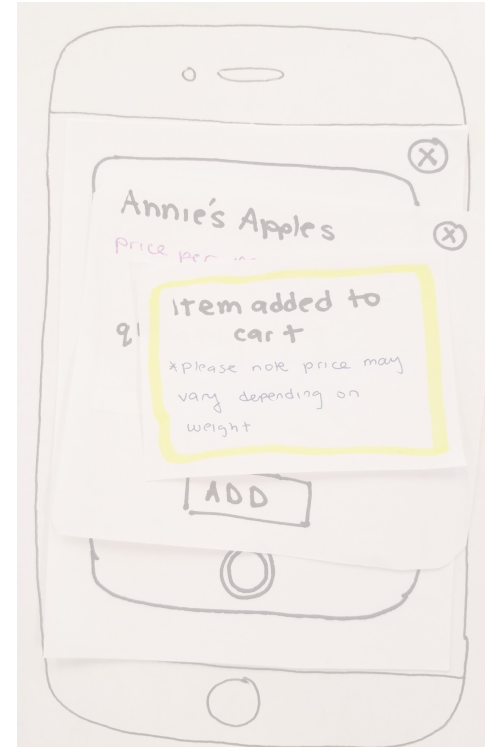 Annie's Apples
price per
Item added to
cart
*please note price may
vary depending on
weight
ADD